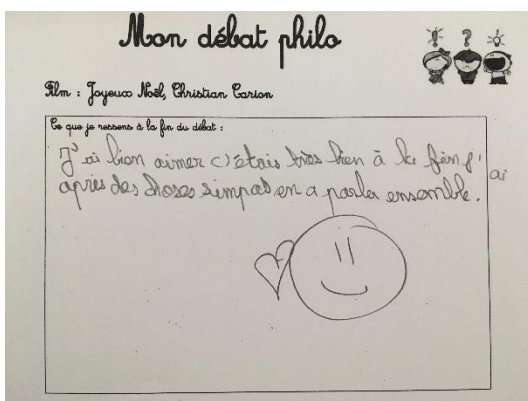 Mon débat philo
Film : Joyeux Noël, Christian Carion
Ce que je ressens à la fin du débat :
J'ai bien aimer c'étais très bien à la fin j'ai
apris des choses simpas en a parler ensemble.